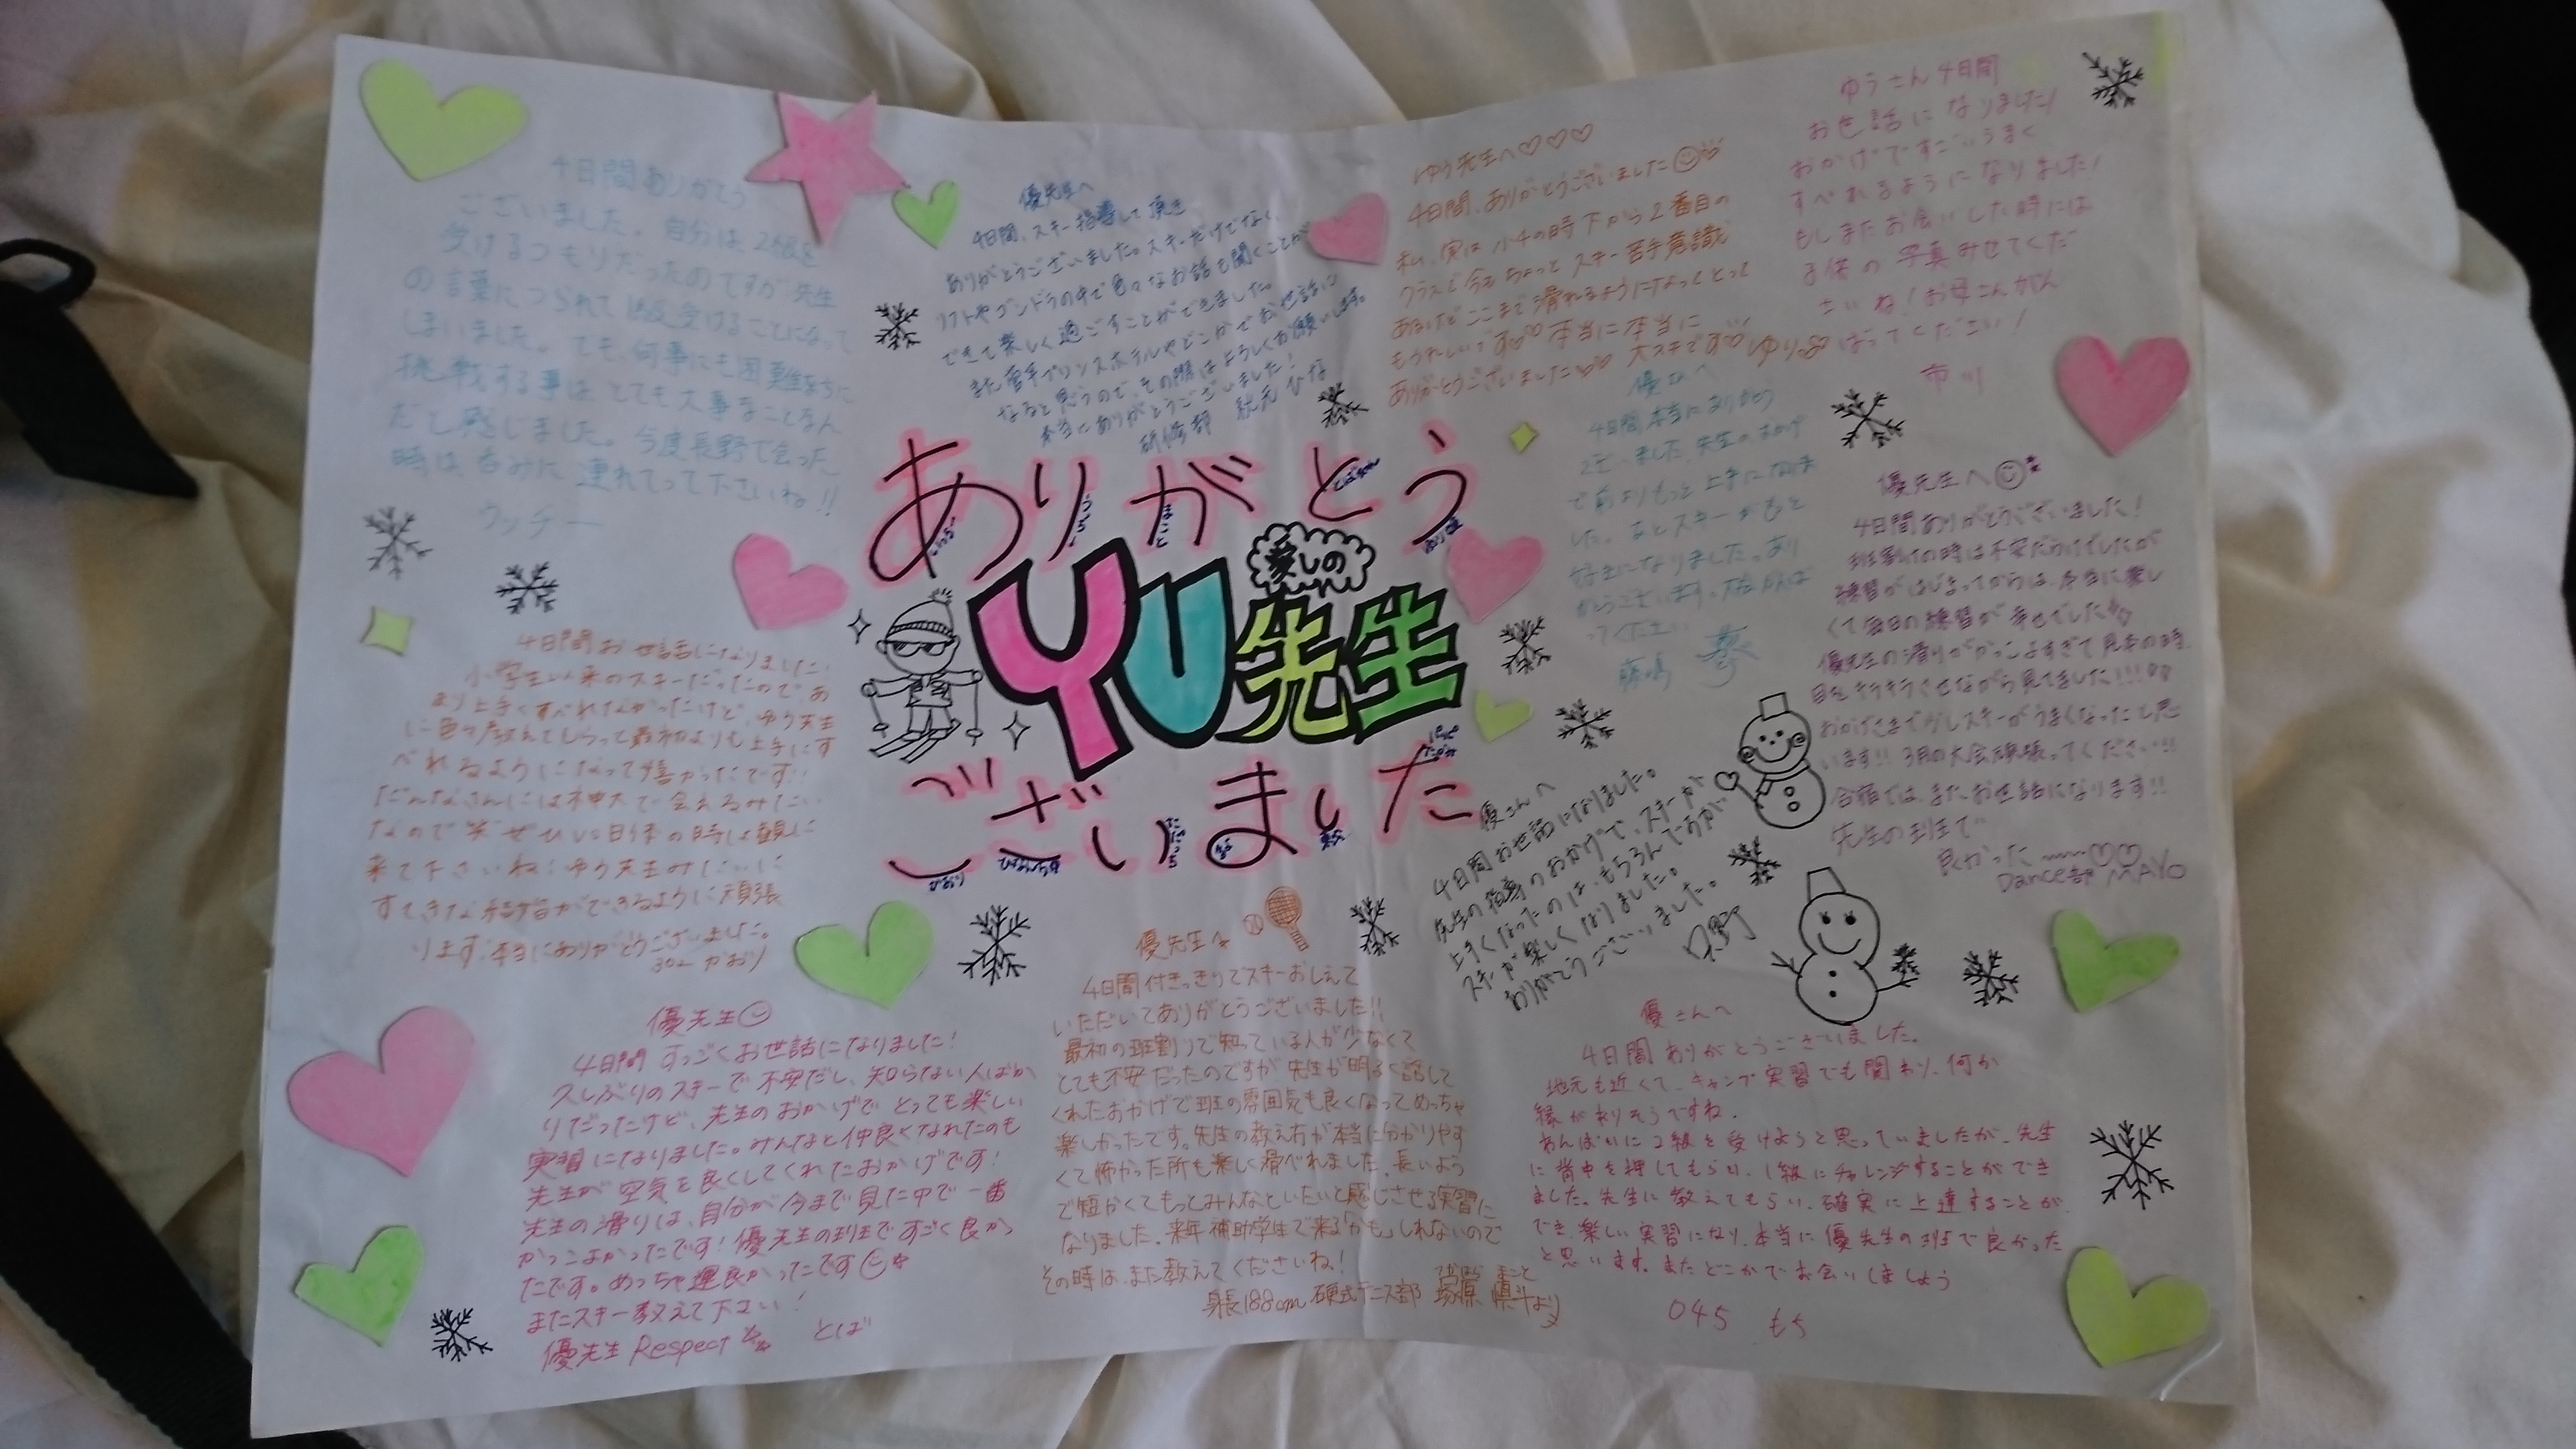 4日間ありがとう
ございました。自分は2級を
受けるつもりだったのですが先生
の言葉につられて1級受けることになって
しまいました。でも何事にも困難なものに
挑戦する事はとても大事なことなん
だと感じました。今度長野で会った
時は呑みに連れてって下さいね!!
ウッチー
優先生へ
4日間、スキー指導して頂き
ありがとうございました。スキーだけでなく、
リフトやゴンドラの中で色々なお話も聞くことが
できて楽しく過ごすことができました。
また苗场プリンスホテルやどこかでお世話に
なると思うので、その際はよろしくお願いします。
本当にありがとうございました!
研修部 ひな
ゆう先生へ♡♡♡
4日間、ありがとうございました
私、実は小4の時下から2番目の
クラスで今もちょっとスキー苦手意識
あるけどここまで滑れるようになってとって
もうれしいです 本当に本当に
ありがとうございました 大スキです♡ ゆり
ゆうさん4日間
お世話になりました!
おかげですごいうまく
すべれるようになりました!
もしまたお会いした時には
子供の写真みせてくだ
さいね!お母さんがん
ばってください!
市川
優
4日間本当にありがとう
ございました。先生のおかげ
で前よりもっと上手になれま
した。あとスキーがもっと
好きになりました。あり
がとうございます。
ってください
藤嶋
優先生へ
4日間ありがとうございました!
班割りの時は不安だらけでしたが
練習がはじまってからは、本当に楽し
くて毎日の練習が幸せでした
優先生の滑りがかっこよすぎて見本の時、
目をキラキラさせながら見てました!!!
おかげさまで少しスキーがうまくなったと思
います!! 3月の大会頑張ってください!!
合宿では、またお世話になります!!
先生の班で
良かった〜〜♡♡
Dance部 MAYO
ありがとう
愛しの
YU先生
ございました
4日間お世話になりました!
小学生以来のスキーだったので、あ
まり上手くすべれなかったけど、ゆう先生
に色々教えてもらって最初よりも上手にす
べれるようになって嬉かったです!!
だんなさんには神大で会えるみたい
なので笑 ぜひvs日体の時は観に
来て下さいね! ゆう先生みたいに
すてきな結婚ができるように頑張
ります。本当にありがとうございました。
かおり
優さんへ
4日間お世話になりました。
先生の指導のおかげで、スキーが
上手くなったのは、もちろんですが
スキーが楽しくなりました。
ありがとうございました。
只野
優先生
4日間すっごくお世話になりました!
久しぶりのスキーで不安だし、知らない人ばか
りだったけど、先生のおかげでとっても楽しい
実習になりました。みんなと仲良くなれたのも
先生が空気を良くしてくれたおかげです!
先生の滑りは、自分が今まで見た中で一番
かっこよかったです!優先生の班ですごく良かっ
たです。めっちゃ運良かったです
またスキー教えて下さい!
優先生 Respect とば
優先生へ
4日間付きっきりでスキーおしえて
いただいてありがとうございました!!
最初の班割りで知っている人が少なくて
とても不安だったのですが先生が明るく話して
くれたおかげで班の雰囲気も良くなってめっちゃ
楽しかったです。先生の教え方が本当に分かりやす
くて怖かった所も楽しく滑べれました。長いよう
で短かくてもっとみんなといたいと感じさせる実習に
なりました。来年補助学生で来る「かも」しれないので
その時は、また教えてくださいね!
身長188cm 硬式テニス部 塚原 慎斗より
優さんへ
4日間ありがとうございました。
地元も近くて、キャンプ実習でも関わり、何か
縁がありそうですね。
あんぱいに2級を受けようと思っていましたが、先生
に背中を押してもらい、1級にチャレンジすることができ
ました。先生に教えてもらい、確実に上達することが
でき、楽しい実習になり、本当に優先生の班で良かった
と思います。またどこかでお会いしましょう
045 もち